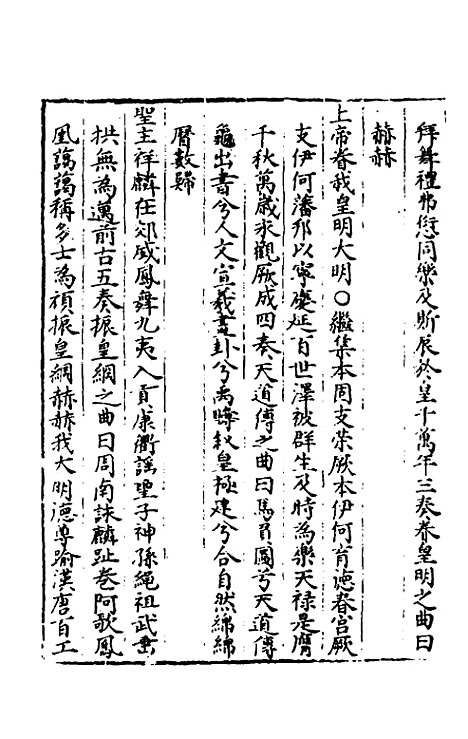 拜舞禮弗愆同樂及斯辰於皇千萬年三奏眷皇明之曲曰
赫赫
上帝眷我皇明大明○繼集本固支荣厥本伊何育德春宫厥
支伊何藩邦以寧慶延百世澤被群生及時為樂天禄是膺
千秋萬歳永觀厥成四奏天道傳之曲曰馬負圖兮天道傳
龜出書兮人文宣羲畫卦兮禹疇叙皇極建兮合自然綿綿
曆數歸
聖主祥麟在郊威鳳舞九夷入貢康衢謡聖子神孫繩祖武垂
拱無為邁前古五奏振皇綱之曲曰周南詠麟趾卷阿歌鳳
凰藹藹稱多士為禎振皇綱赫赫我大明德尊踰漢唐百工